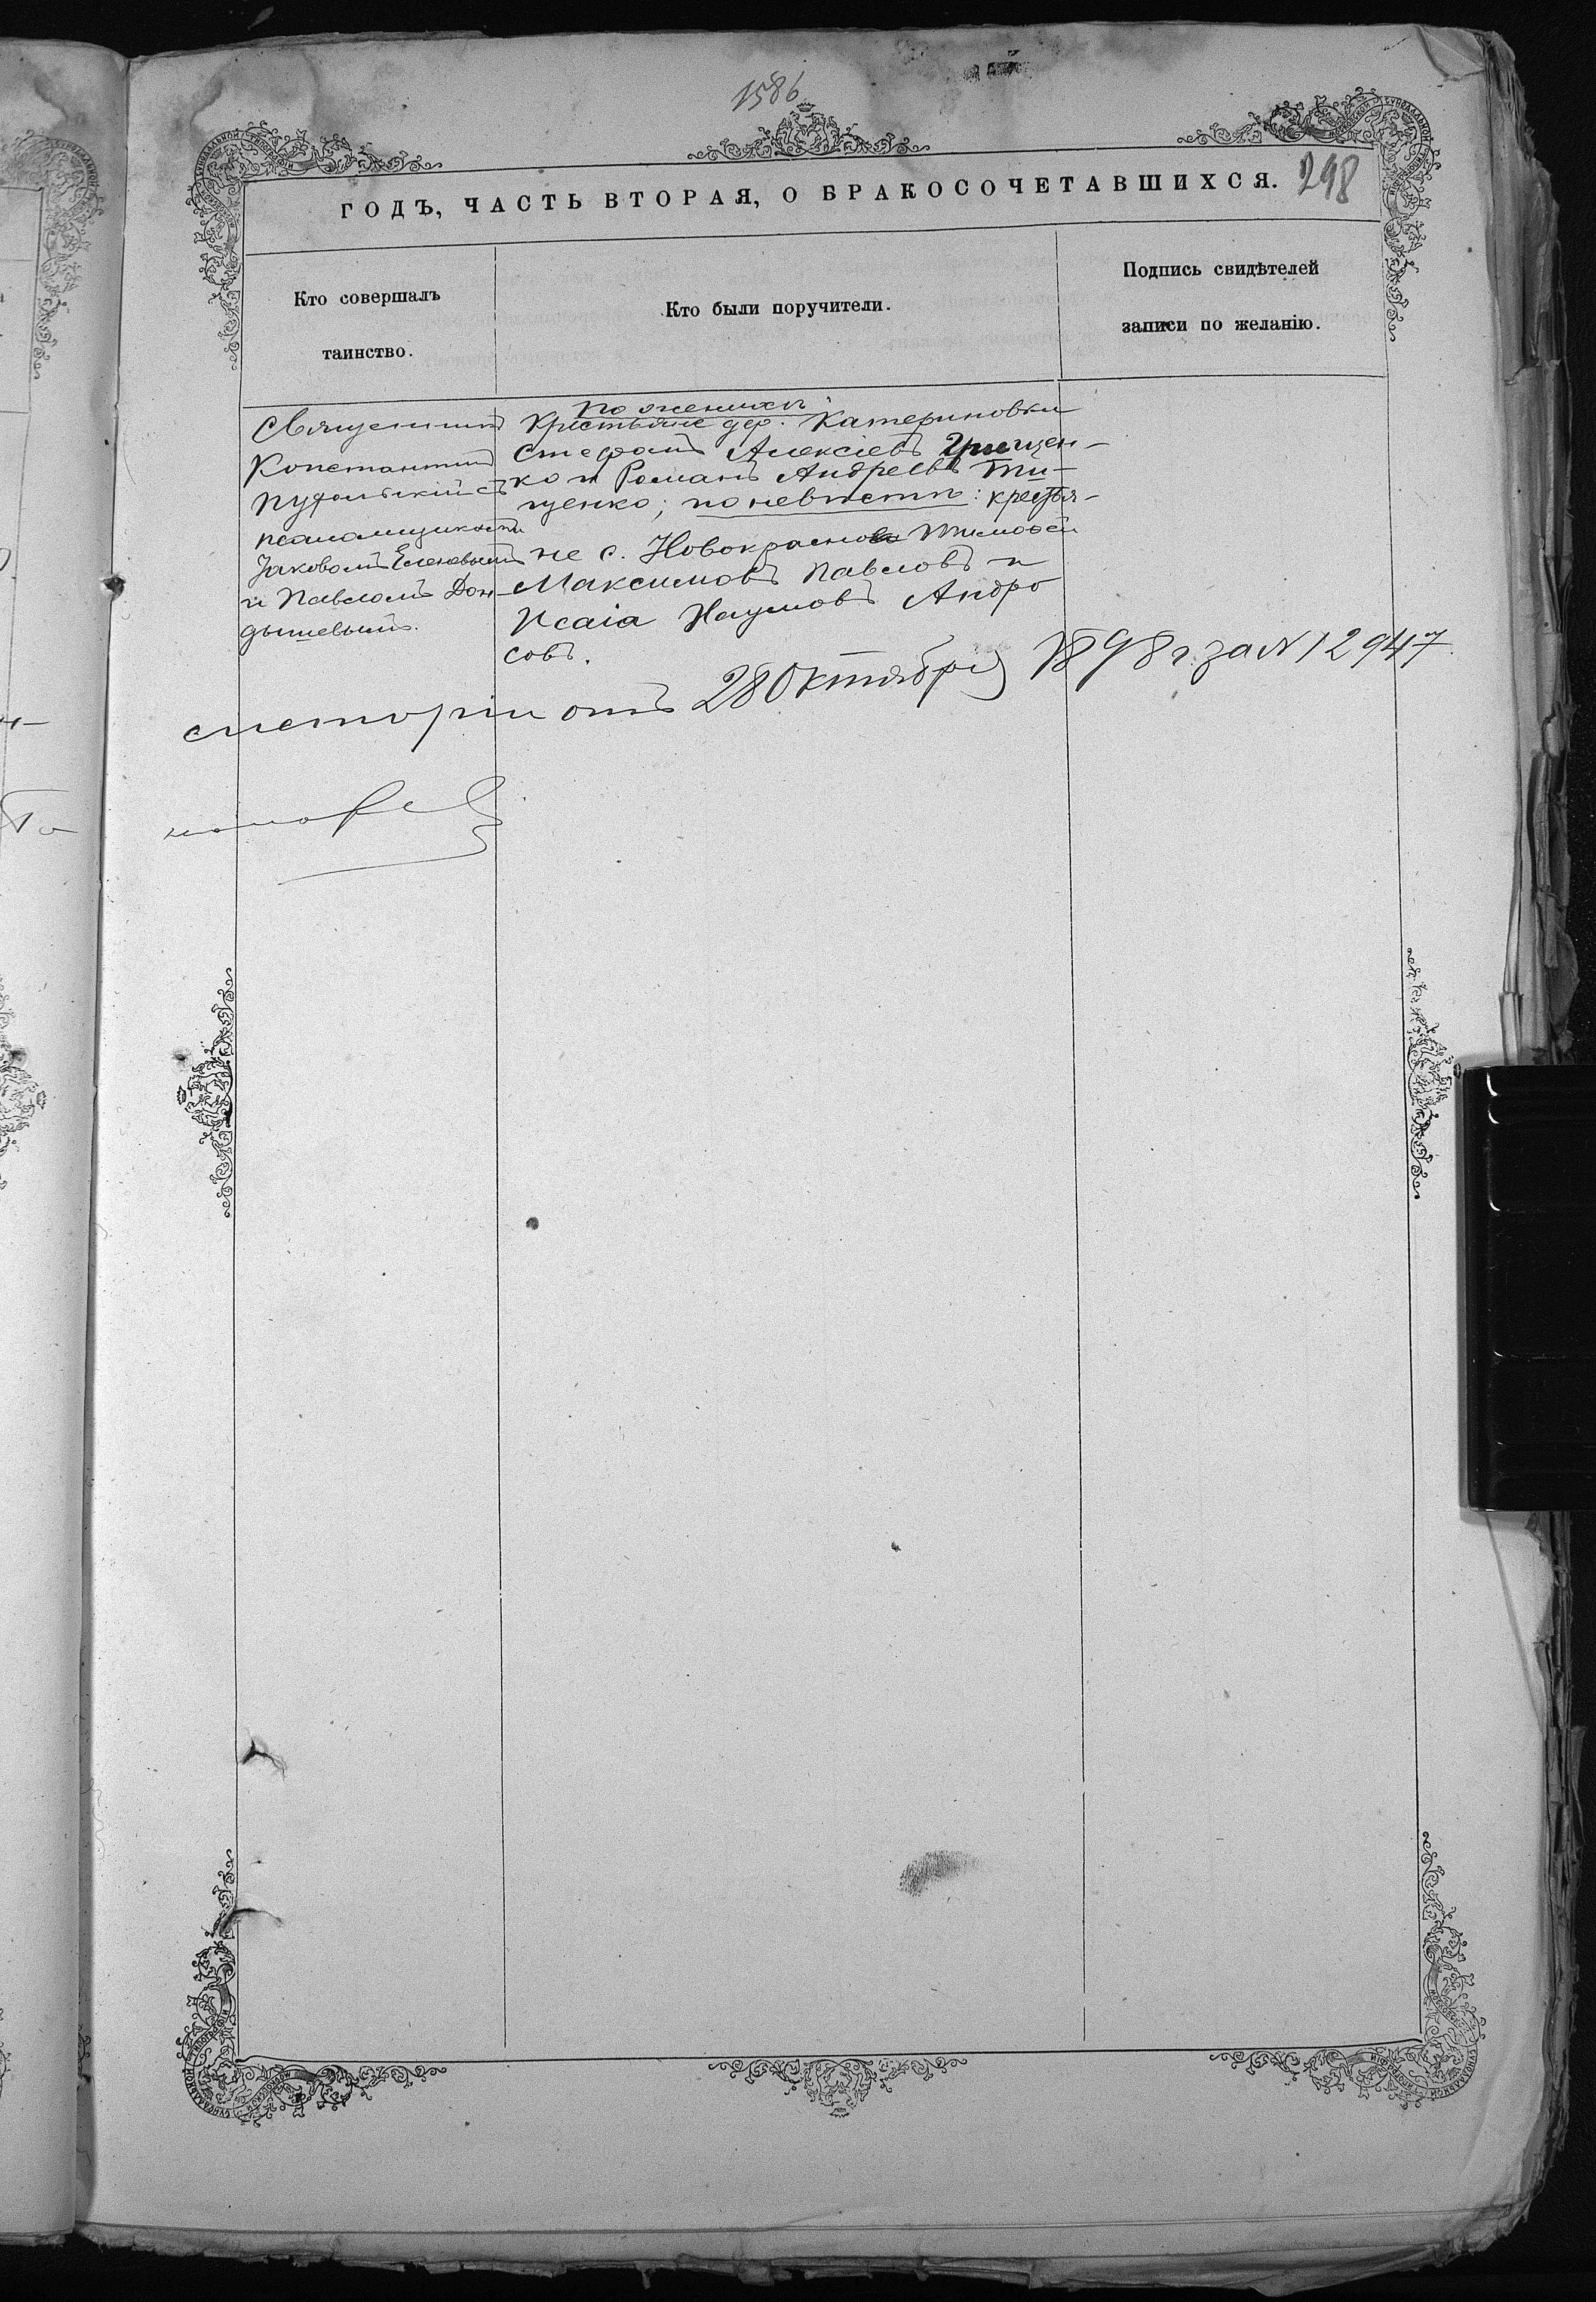 1586
298
ГОДЪ, ЧАСТЬ ВТОРАЯ, О БРАКОСОЧЕТАВШИХСЯ.
Кто совершалъ
таинство.
Кто были поручители.
Подпись свидѣтелей
записи по желанію.
Священникъ
Константинъ
съ
псаломщиками
Іаковомъ
и Павломъ Дон-
дышевымъ.
по женихѣ:
Крестьяне дер. Катериновки
Стефанъ Алексіевъ Грищен-
ко и Романъ Андреевъ Ти-
щенко; по невѣстѣ: крестья-
не с. Новокрасно Тимоѳей
Максимовъ Павловъ и
Исаія Наумовъ Андро
совъ.
систоріи отъ 28 Октября 1898 г. за № 12947.